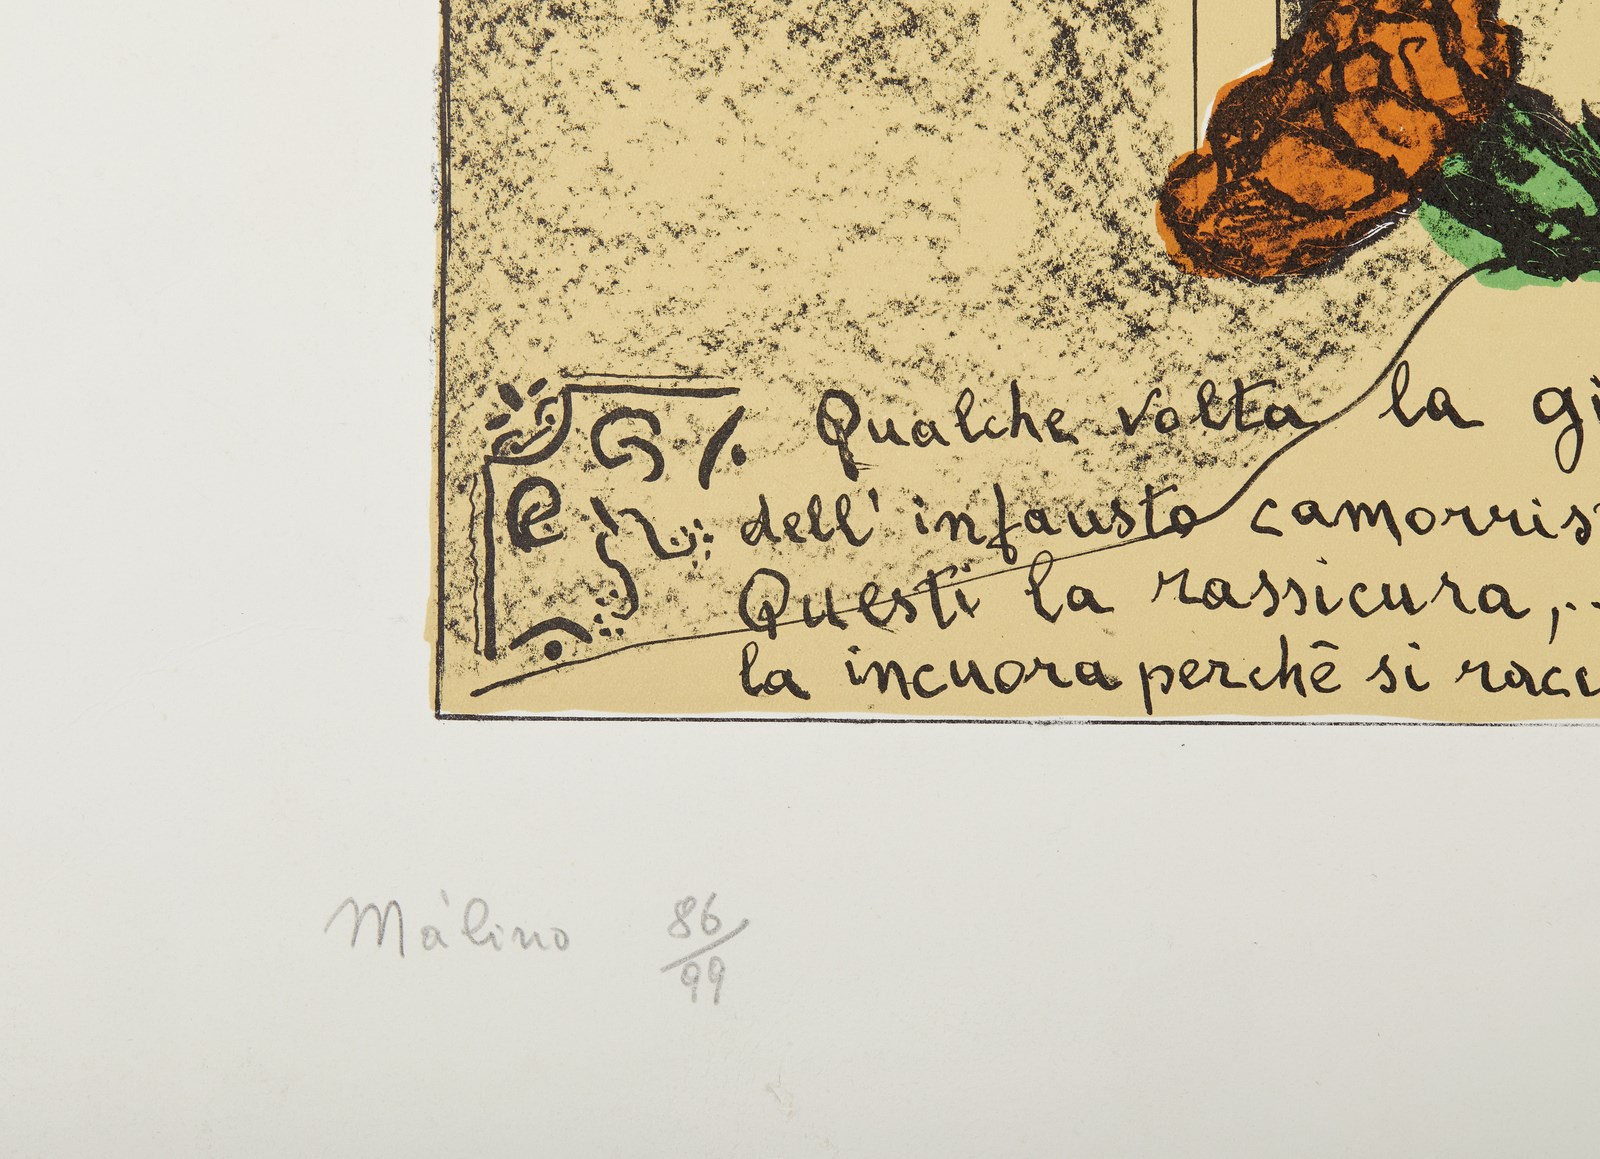 Qualche volta la gi
dell' infausto camorris
Questi la rassicura,..
la incuora perchē si racc
Màlino 86/99